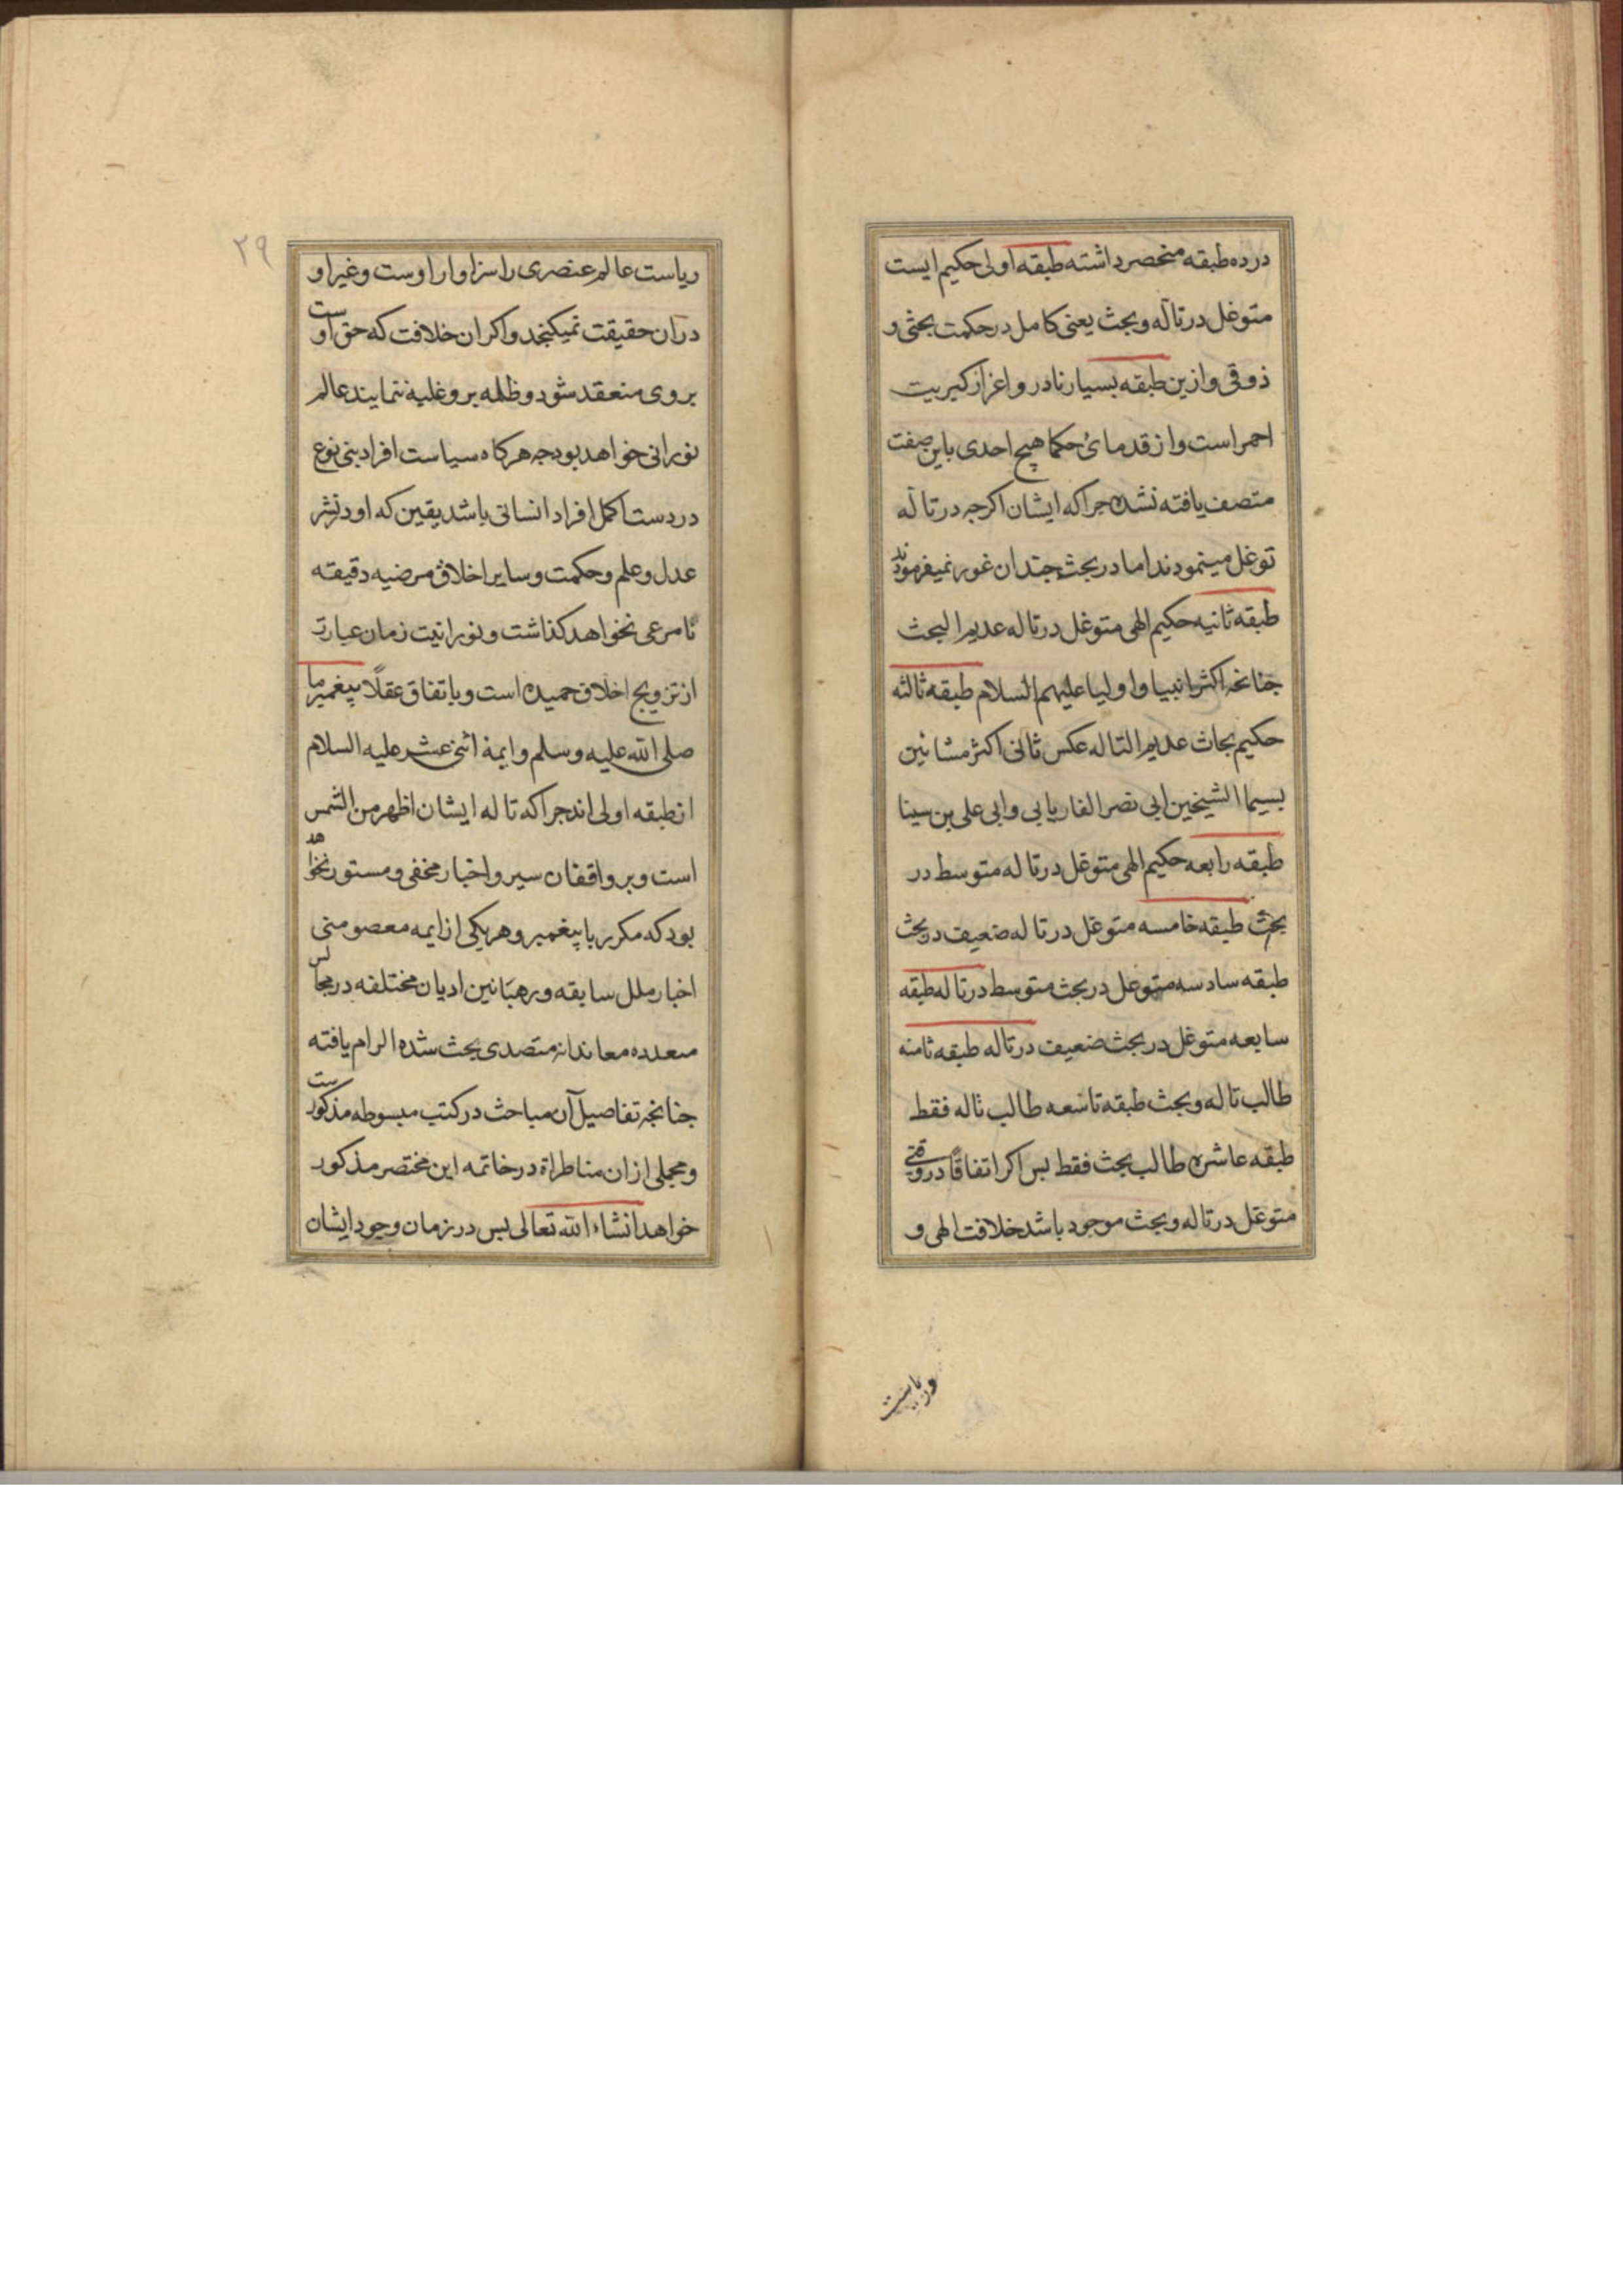 درده طبقه منحصر داشته طبقه اولی حکیم ایست
متوغل در تاله وبحث یعنی کامل در حکمت بحثی و
ذوقی وازین طبقه بسیار نادر و اعز از کبریت
احمر است واز قدمائ حکما هیچ احدی باین صفت
متصف یافته نشده جرا که ایشان اکرجه در تا له
توغل مینمودند اما در بحث جندان غور نمیفرمودند
طبقه ثانیه حکیم الهی متوغل در تا له عدیم البحث
جنانجه اکثر انبیا و اولیا علیهم السلام طبقه ثالثه
حکیم بحاث عدیم التا له عکس ثانی اکثر مشائین
بسیما الشیخین ابی نصر الفاریابی وابی علی بن سینا
طبقه رابعه حکیم الهی متوغل در تا له متوسط در
بحث طبقه خامسه متوغل در تا له ضعیف در بحث
طبقه سادسه متوغل در بحث متوسط در تا له طبقه
سابعه متوغل در بحث ضعیف در تاله طبقه ثامنه
طالب تا له وبحث طبقه تاسعه طالب تاله فقط
طبقه عاشره طالب بحث فقط بس اکر اتفاقًا در وقتی
متوغل در تاله وبحث موجود باشد خلافت الهی و
وریاست
۲۹
ریاست عالم عنصری را سزاوار اوست وغیر او
دران حقیقت نمیکنجد واکر ان خلافت که حق اوست
بروی منعقد شود وظلمه برو غلبه ننمایند عالم
نورانی خواهد بود جه هرکاه سیاست افراد بنی نوع
در دست اکمل افراد انسانی باشد یقین که او در نشر
عدل وعلم وحکمت وسایر اخلاق مرضیه دقیقه
نامرعی نخواهد کذاشت ونورانیت زمان عبارت
از ترویج اخلاق حمیده است وباتفاق عقلًا پیغمبر ما
صلی الله علیه وسلم وایمهٔ اثنی عشر علیه السلام
از طبقه اولی اند جرا که تا له ایشان اظهر من الشمس
است وبر واقفان سیر واخبار مخفی ومستور نخواهد
بود که مکرر با پیغمبر وهر یکی از ایمه معصومین
اخبار ملل سابقه ورهبانین ادیان مختلفه در مجالس
متعدده معاندانه متصدی بحث شده الزام یافته
جنانجه تفاصیل آن مباحث در کتب مبسوطه مذکورست
ومجملی ازان مناظراة در خاتمه این مختصر مذکور
خواهد انشاء الله تعالی بس در زمان وجود ایشان